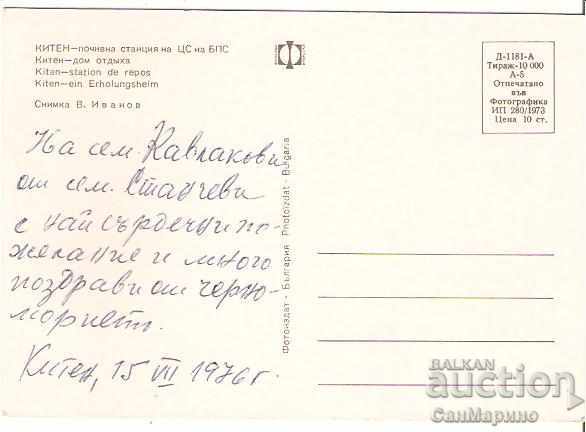 КИТЕН—почивна станция на ЦС на БПС
Китен—дом отдыха
Kitan—station de repos
Kiten—ein Erholungsheim
Снимка В. Иванов
Д-1181-А
Тираж-10 000
А-5
Отпечатано
във
Фотографика
ИП 280/1973
Цена 10 ст.
На сем. Кавлакови
от сем. Станчеви
с най сърдечни по-
желание и много
поздрави от черно-
мориетъ.
Китен, 15 VII 1976 г.
Фотоиздат - България Photoizdat - Bulgaria
BALKAN
auction
СанМарино